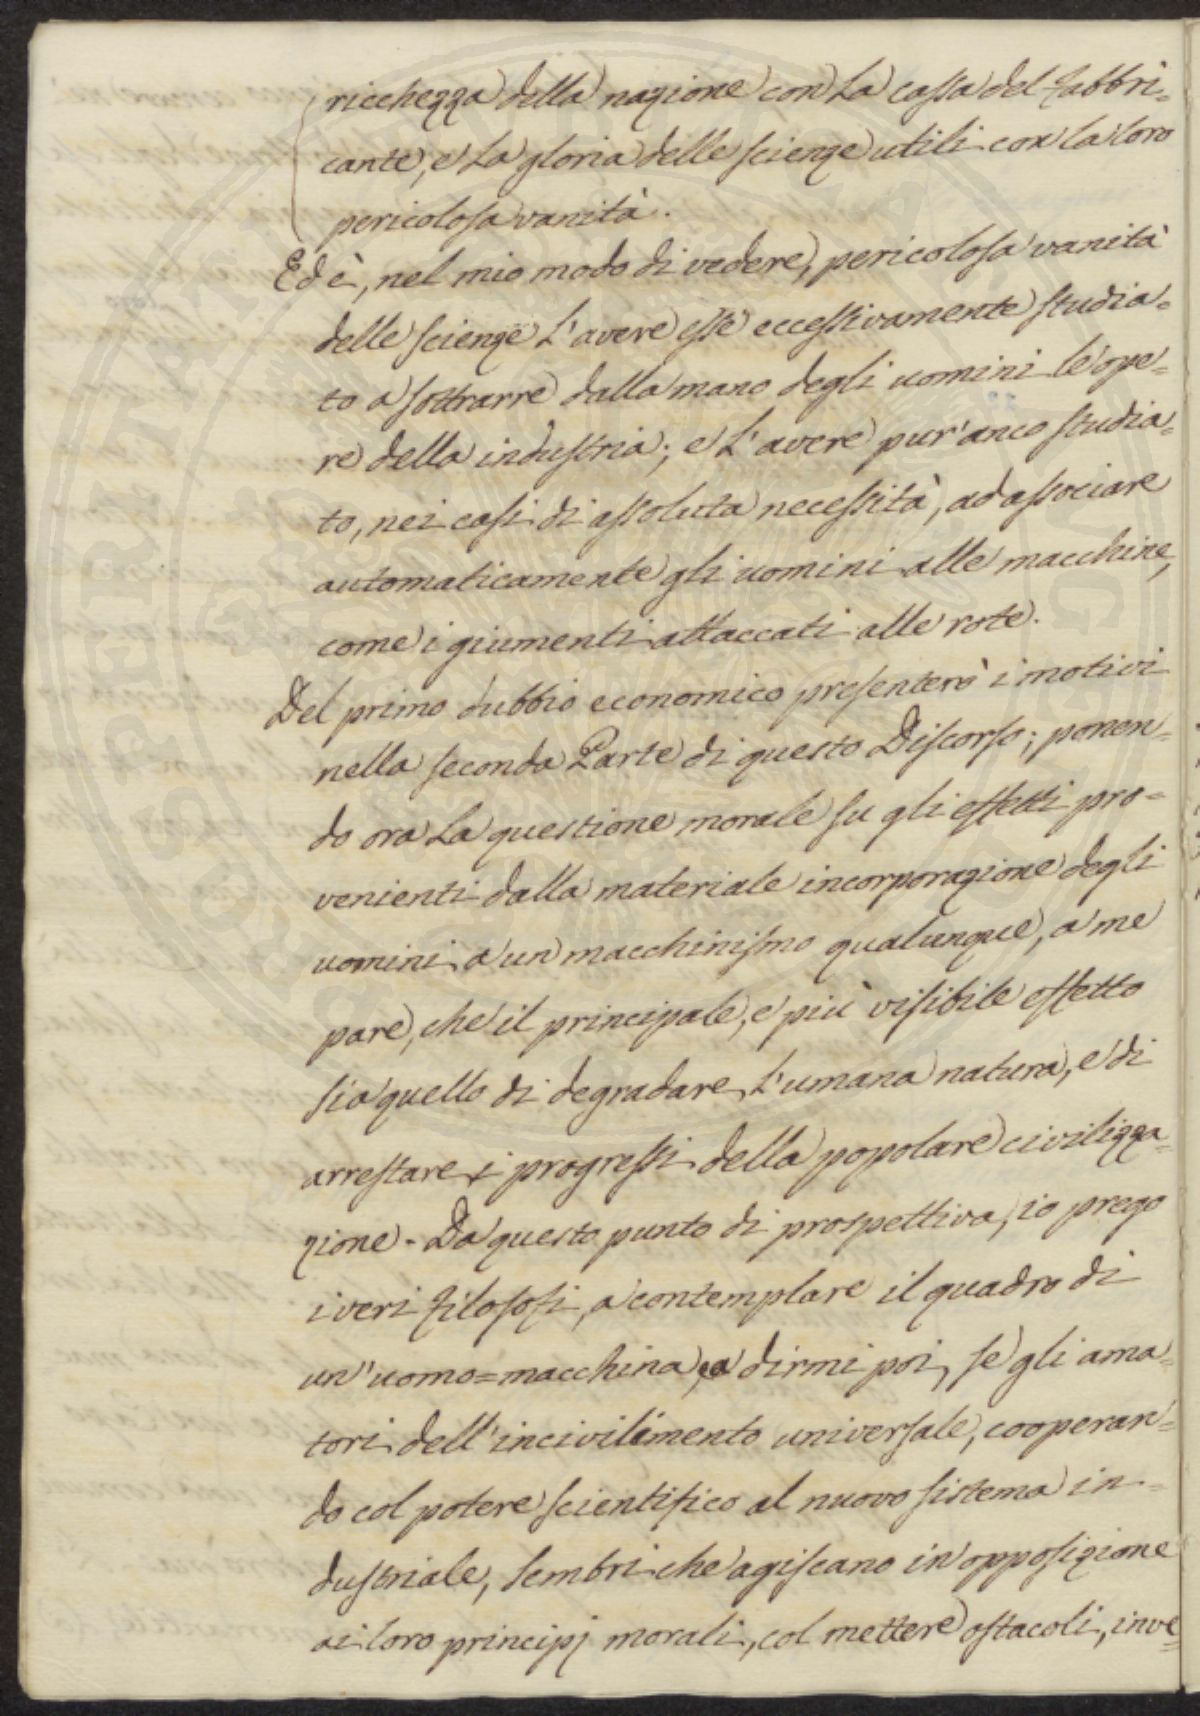 ricchezza della nazione con la cassa del fabbri=
cante, e la gloria delle scienze utili con la loro
pericolosa vanità.
Ed è, nel mio modo di vedere, pericolosa vanità
delle scienze l'avere esse eccessivamente studia=
to a sottrarre dalla mano degli uomini le ope=
re della industria; e l'avere pur'anco studia=
to, nei casi di assoluta necessità, ad associare
automaticamente gli uomini alle macchine,
come i giumenti attaccati alle rote.
Del primo dubbio economico presenterò i motivi
nella seconda Parte di questo Discorso; ponen=
do ora la questione morale su gli effetti pro=
venienti dalla materiale incorporazione degli
uomini a un macchinismo qualunque, a me
pare, che il principale, e più visibile effetto
sia quello di degradare l'umana natura, e di
arrestare i progressi della popolare civilizza=
zione. Da questo punto di prospettiva, io prego
i veri filosofi, a contemplare il quadro di
un'uomo=macchina, a dirmi poi, se gli ama=
tori dell'incivilimento universale, cooperan=
do col potere scientifico al nuovo sistema in=
dustriale, sembri che agiscano in opposizione
ai loro principj morali, col mettere ostacoli, inve=